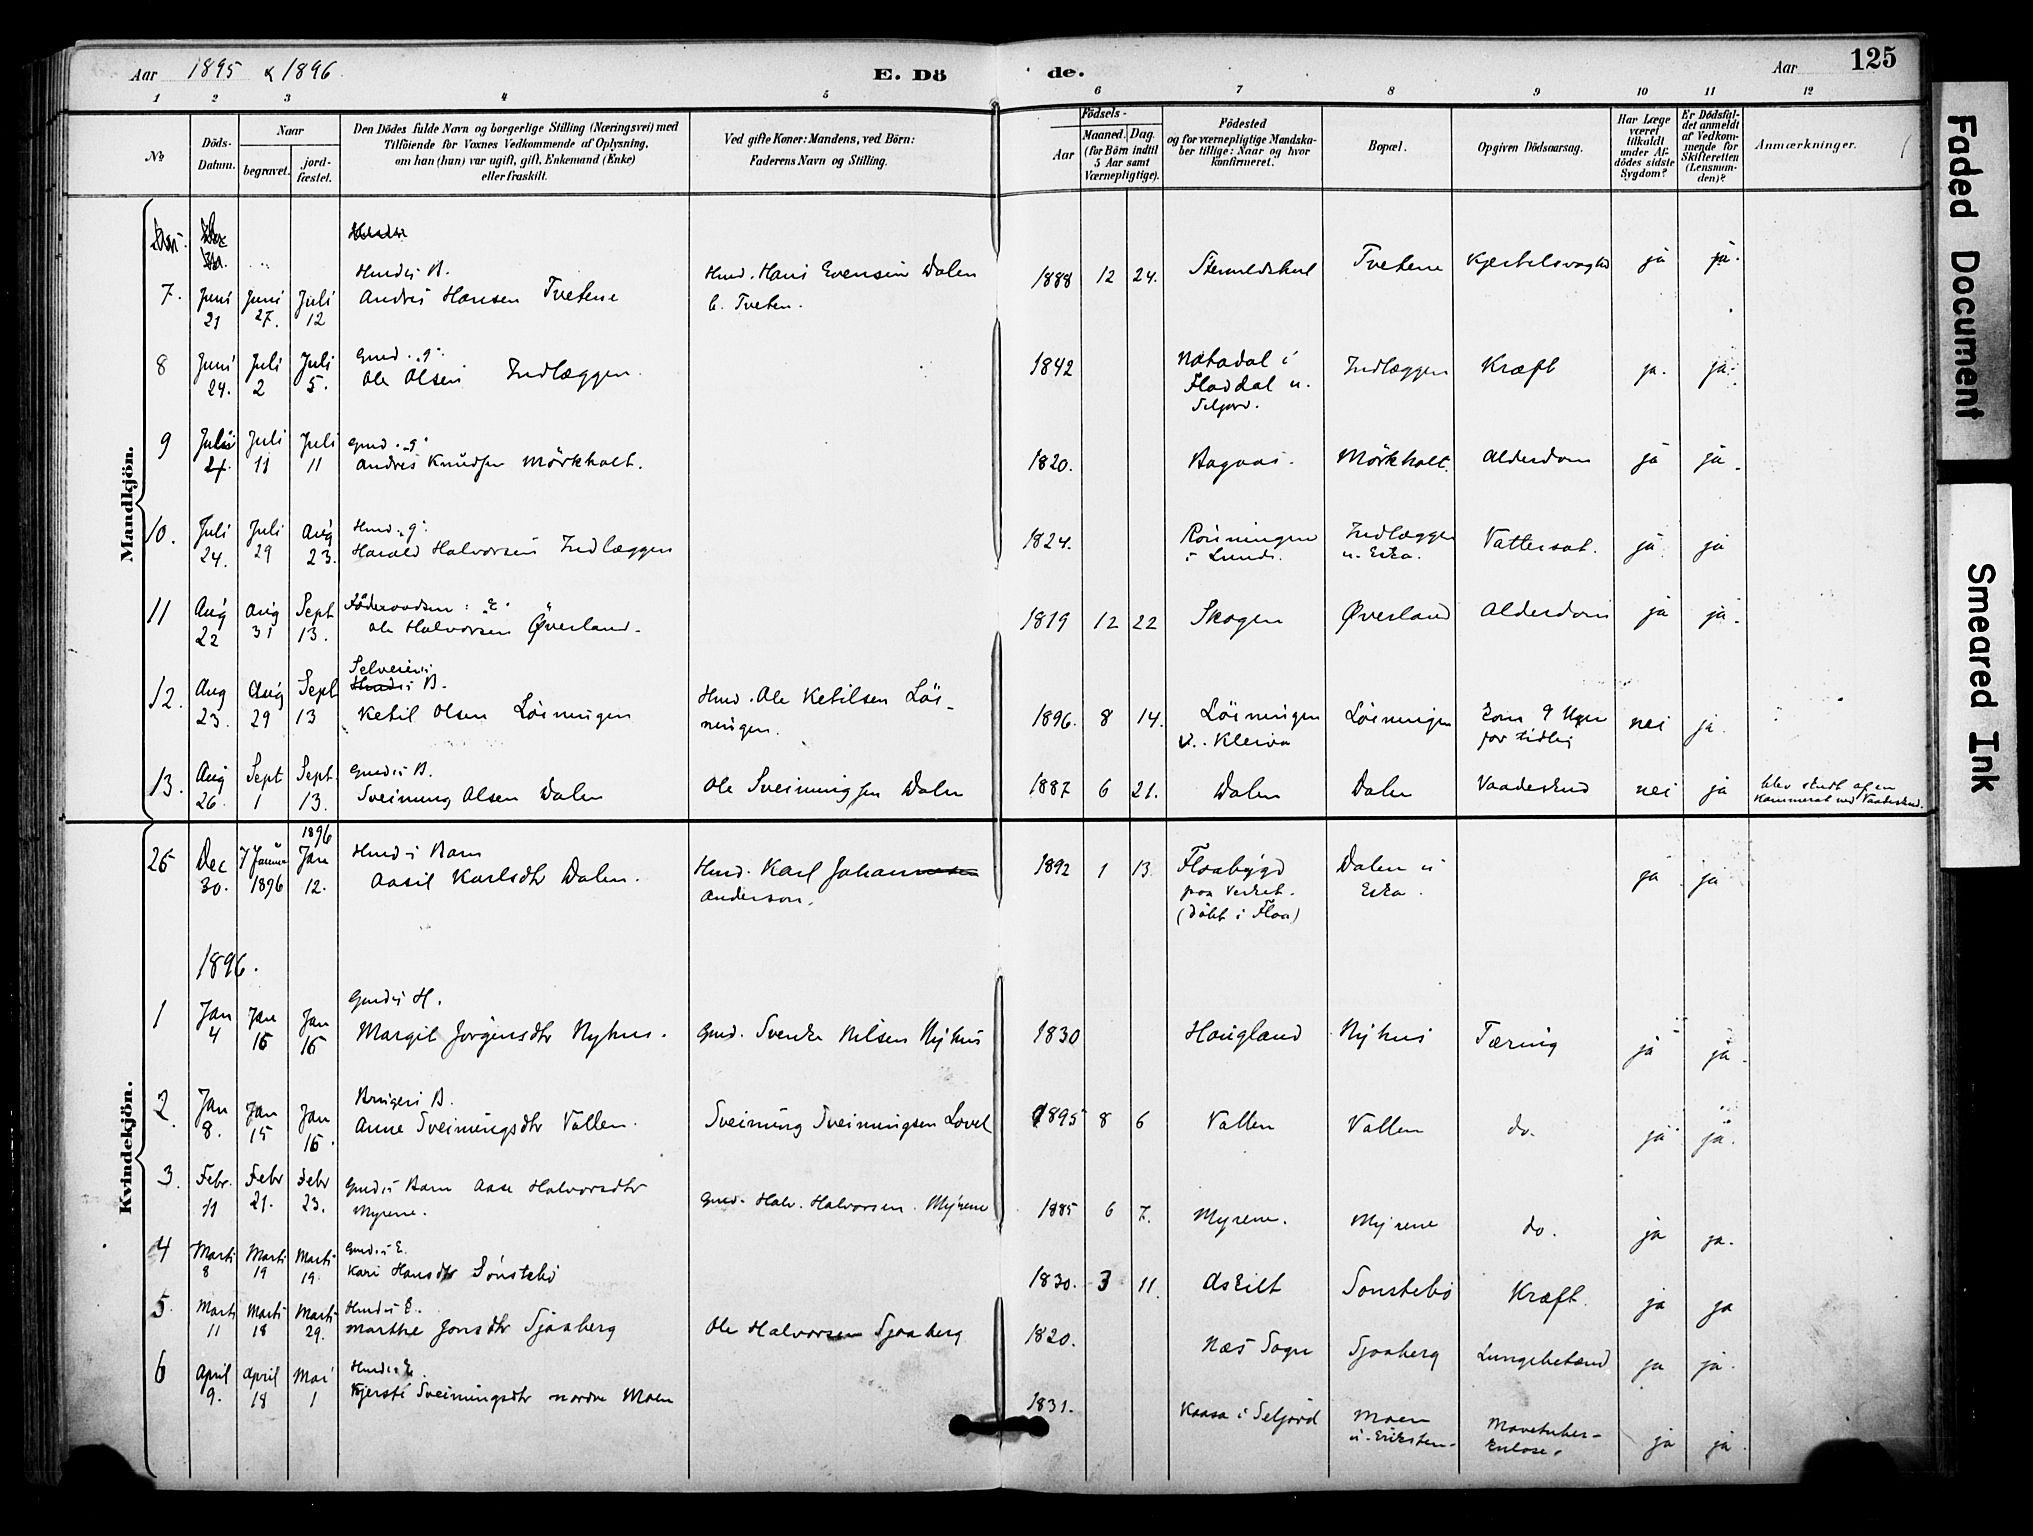 Aar 1895 & 1896.
E. Dö
de.
Aar
125
1 2 3 4 5 6 7 8 9 10 11 12
№
Döds-
Datum.
Naar
begravet.
jord-
fæstet.
Den Dödes fulde Navn og borgerlige Stilling (Næringsvei) med
Tilföiende for Voxnes Vedkommende af Oplysning,
om han (hun) var ugift, gift, Enkemand (Enke)
eller fraskilt.
Ved gifte Koner: Mandens, ved Börn:
Faderens Navn og Stilling.
Födsels-
Aar
Maaned. Dag.
(for Börn indtil
5 Aar samt
Værnepligtige).
Födested
og for værnepligtige Mandska-
ber tillige: Naar og hvor
konfirmeret.
Bopæl.
Opgiven Dödsaarsag.
Har Læge
været
tilkaldt
under Af-
dödes sidste
Sygdom?
Er Dödsfal-
det anmeldt
af Vedkom-
mende for
Skifteretten
(Lensman-
den)?
Anmærkninger.
Mandkjön.
Husm.s B. Husm. Hans Evensen Dalen
7. Juni 21 Juni 27. Juli 12 Andres Hansen Tvetene b. Tveten. 1888 12 24. Tvetene ja ja.
8 Juni 24. Juli 2 Juli 5. Gmd. "g".
Ole Olsen Indlæggen. 1842 Natadal i
Flaadal u.
Seljord. Indlæggen Kræft ja. ja.
9 Juli 24. Juli 11 Juli 11 Gmd. "g"
Andres Knudsen Mörkholt. 1820. Bagaas. Mörkholt. Alderdom ja ja.
10. Juli 24. Juli 29 Aug 23. Husm. "g"
Harald Halvorsen Indlæggen 1824. Rönningen
i Lunde. Indlæggen
u. Eika. Vattersot. ja ja
11 Aug 22 Aug 31 Sept 13. Föderaadsm: "E".
Ole Halvorsen Överland. 1819 12 22 Skogen Överland Alderdom ja ja.
12. Aug 23. Aug 29 Sept 13 Selveiers
Husm.s B.
Ketil Olsen Löinningen Husm. Ole Ketilsen Löi-
ningen. 1896. 8 14. Löinningen
u. Kleiva Löinningen Kom 9 Uger
for tidlig nei ja.
13. Aug 26. Sept 1 Sept. 13. Gmds B.
Sveinung Olsen Dalen Ole Sveinungsen Dalen 1887 6 21. Dalen Dalen Vaadeskud nei ja blev skudt af en
Kammerat ved Vaadeskud.
Kvindekjön.
25 Dec 30. 7 Januar 1896 1896 Jan 12. Husm.s Barn
Aasil Karlsdtr Dalen. Husm. Karl Johannesen
Anderson. 1892 1 13 Flaabygd
paa Verket.
(döbt i Flaa) Dalen u
Eika. ja ja
1896.
1 Jan 4 Jan 16 Jan 16 Gmds H.
Margit Jörgensdtr Nyhus. Gmd. Svenke Nilsen Nyhus 1830 Haugland Nyhus Tæring ja ja.
2. Jan 8. Jan 15 Jan 16. Brugers B.
Anne Sveinungsdtr Vallen. Sveinung Sveinungsen 1895 8 6 Vallen Vallen do. ja ja.
3. Febr. 11 Febr 21. Febr 23. Gmds Barn Aase Halvorsdtr
Myrene. Gmd. Halv. Halvorsen. Myrene 1885 6 7. Myrene. Myrene do. ja ja.
4 Marts 8 Marts 19 Marts 19. Gmds E.
Kari Hansdtr Sönstebö 1830. 3 11. Askilt Sönstebö Kræft. ja ja
5. Marts 11 Marts 18 Marts 29. Husm.s E.
Marthe Jonsdtr Sjaaberg Ole Halvorsen Sjaaberg 1820. Næs Sogn Sjaaberg Lungebetænd ja ja.
6 April 9. April 18 Mai 1 Husm.s E.
Kjersti Sveinungsdtr nordre Moen 1831. Kaasa i Seljord Moen
u. Eriksten. Mavetuber-
kulose. ja ja.
Faded Document
Smeared Ink